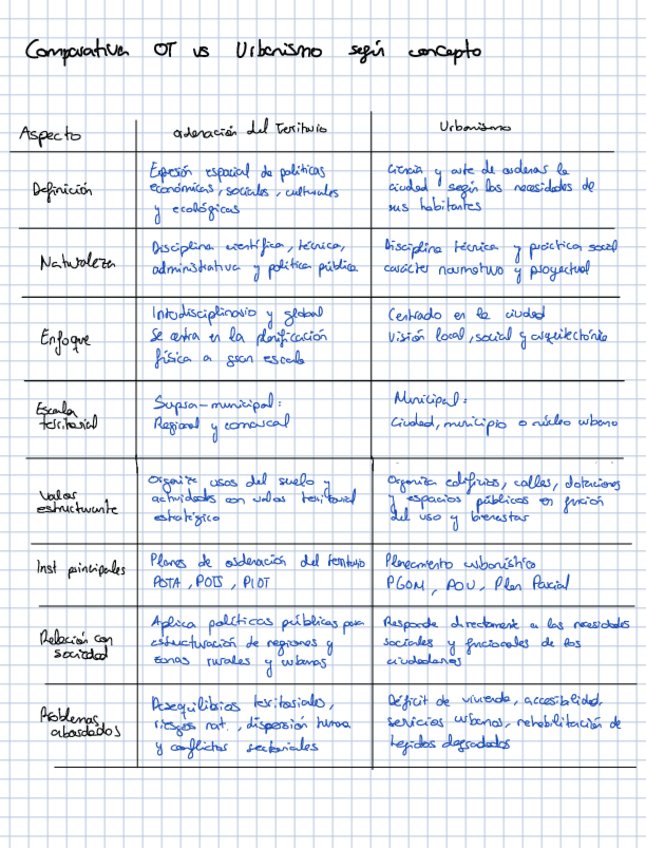 Comparativa OT vs Urbanismo según concepto
Aspecto
ordenación del Territorio
Urbanismo
Definición
Expresión espacial de políticas
económicas, sociales, culturales
y ecológicas
Ciencia y arte de ordenar la
ciudad según las necesidades de
sus habitantes
Naturaleza
Disciplina científica, técnica,
administrativa y política pública.
Disciplina técnica y práctica social
carácter normativo y proyectual
Enfoque
Interdisciplinario y global
Se centra en la planificación
física a gran escala
Centrado en la ciudad
Visión local, social y arquitectónica
Escala
territorial
Supra-municipal:
Regional y comarcal
Municipal:
Ciudad, municipio o núcleo urbano
Valor
estructurante
Organiza usos del suelo y
actividades con valor territorial
estratégico
Organiza edificios, calles, dotaciones
y espacios públicos en función
del uso y bienestar
Inst principales
Planes de ordenación del territorio
POTA, POTS, PIOT
Planeamiento urbanístico
PGOM, POU, Plan Parcial
Relación con
sociedad
Aplica políticas públicas para
estructuración de regiones y
zonas rurales y urbanas
Responde directamente a las necesidades
sociales y funcionales de los
ciudadanos
Problemas
abordados
Desequilibrios territoriales,
riesgos nat., dispersión humana
y conflictos sectoriales
Déficit de vivienda, accesibilidad,
servicios urbanos, rehabilitación de
tejidos degradados